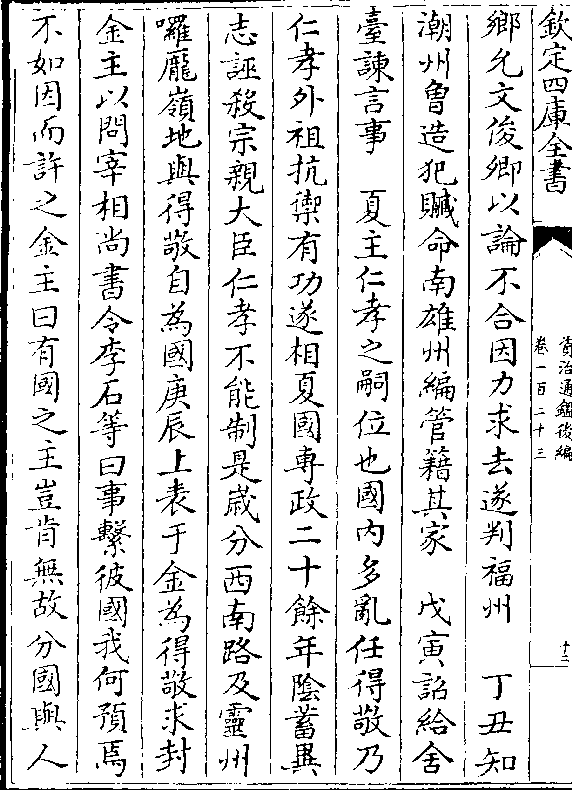 欽定四庫全書
資治通鑑後編
卷一百二十三
十二
鄉允文俊卿以論不合因力求去遂判福州　丁丑知
潮州魯造犯贓命南雄州編管籍其家　戊寅詔給舍
臺諫言事　夏主仁孝之嗣位也國内多亂任得敬乃
仁孝外祖抗禦有功遂相夏國專政二十餘年陰蓄異
志誣殺宗親大臣仁孝不能制是歲分西南路及靈州
囉龎嶺地與得敬自為國庚辰上表于金為得敬求封
金主以問宰相尚書令李石等曰事繫彼國我何預焉
不如因而許之金主曰有國之主豈肯無故分國與人